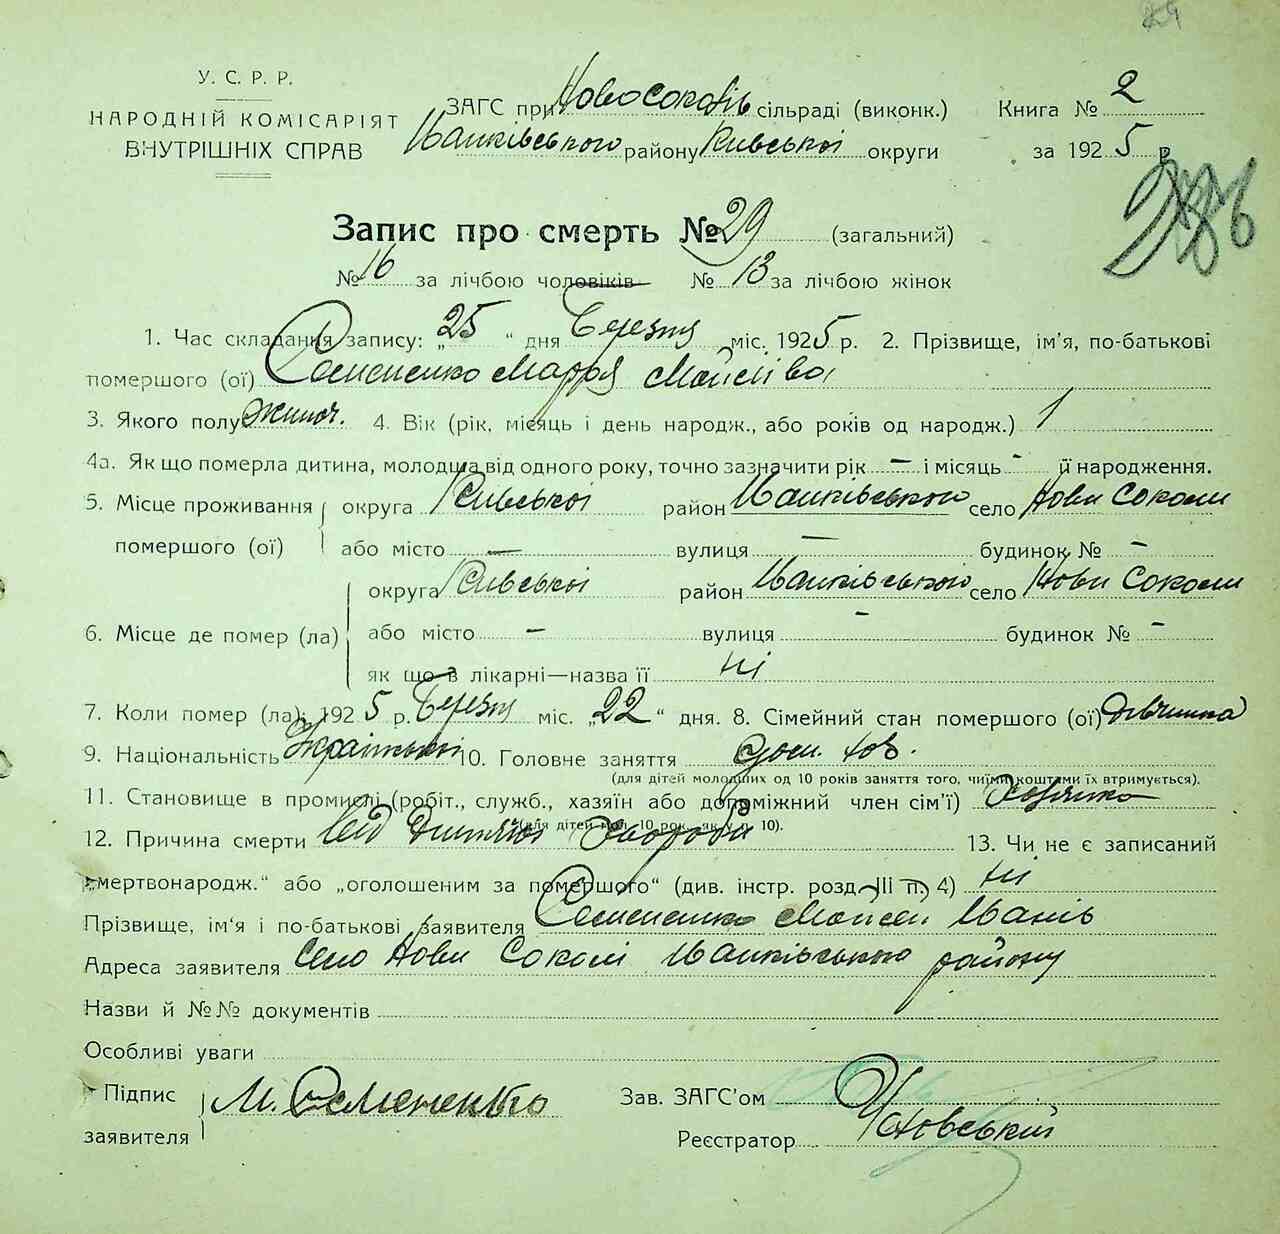 У. С. Р. Р.
НАРОДНІЙ КОМІСАРІЯТ
ВНУТРІШНІХ СПРАВ
ЗАГС при Новосокол сільраді (виконк.)
Іванківського району Київської округи
Книга № 2
за 1925 р.
286
Запис про смерть № 29 (загальний)
№ 16 за лічбою чоловіків № 13 за лічбою жінок
1. Час складання запису: „25“ дня Березня міс. 1925 р. 2. Прізвище, ім'я, по-батькові
помершого (ої) Семененко Марія Мойсіїва
3. Якого полу жіноч. 4. Вік (рік, місяць і день народж., або років од народж.) 1
4а. Як що померла дитина, молодша від одного року, точно зазначити рік – і місяць - її народження.
5. Місце проживання округа Київської район Іванківського село Нови Соколи
помершого (ої) або місто — вулиця — будинок № –
округа Київської район Іванківського село Нови Соколи
6. Місце де помер (ла) або місто – вулиця – будинок № –
як що в лікарні—назва її ні
7. Коли помер (ла): 1925 р. Березня міс. „22“ дня. 8. Сімейний стан помершого (ої) дівчинка
9. Національність 10. Головне заняття
(для дітей молодших од 10 років заняття того, чиїми коштами їх втримується).
11. Становище в промислі (робіт., служб., хазяїн або допоміжний член сім'ї)
(для дітей мол. 10 рок. як у п. 10).
12. Причина смерти Від хвороби 13. Чи не є записаний
„мертвонародж.“ або „оголошеним за помершого“ (див. інстр. розд. III п. 4) ні
Прізвище, ім'я і по-батькові заявителя Семененко Мойсей Іванів
Адреса заявителя Село Нови Соколі Іванківського району
Назви й №№ документів
Особливі уваги
Підпис
заявителя М. Семененко
Зав. ЗАГС'ом
Реєстратор